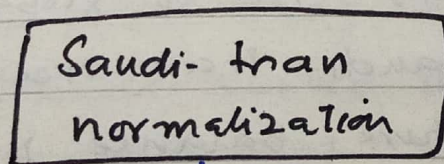 Saudi- Iran
normalization